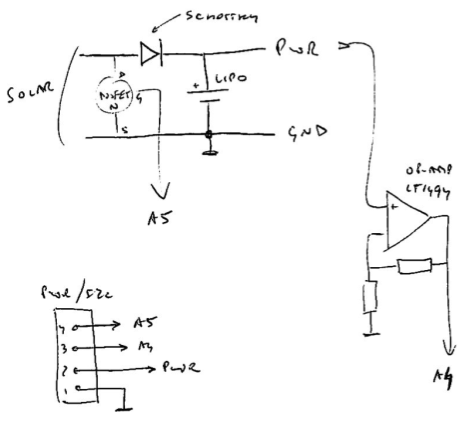 SCHOTTKY
PWR
SOLAR
D
NFET
N
G
S
+
LIPO
GND
A5
OP-AMP
LT1494
+
-
A4
PWR/I2C
4
A5
3
A4
2
PWR
1